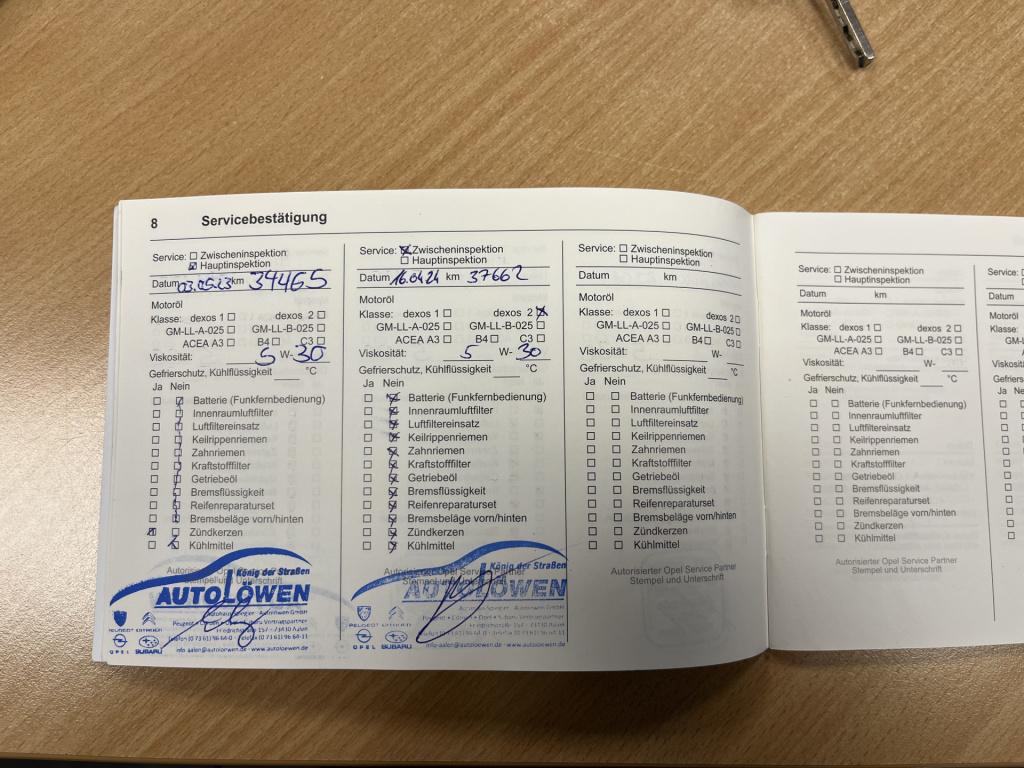 8 Servicebestätigung
Service: ☐ Zwischeninspektion
☒ Hauptinspektion
Datum 03.05.23 km 34465
Motoröl
Klasse: dexos 1 ☐ dexos 2 ☐
GM-LL-A-025 ☐ GM-LL-B-025 ☐
ACEA A3 ☐ B4 ☐ C3 ☐
Viskosität: 5 W- 30
Gefrierschutz, Kühlflüssigkeit ____ °C
Ja Nein
Batterie (Funkfernbedienung)
Innenraumluftfilter
Luftfiltereinsatz
Keilrippenriemen
Zahnriemen
Kraftstofffilter
Getriebeöl
Bremsflüssigkeit
Reifenreparaturset
Bremsbeläge vorn/hinten
Zündkerzen
Kühlmittel
König der Straßen
Stempel und Unterschrift
AUTOLÖWEN
PEUGEOT CITROËN
Telefon (0 73 61) 96 64-0
OPEL SUBARU
info-aalen@autoloewen.de
Service: ☒ Zwischeninspektion
☐ Hauptinspektion
Datum 16.04.24 km 37662
Motoröl
Klasse: dexos 1 ☐ dexos 2 ☒
GM-LL-A-025 ☐ GM-LL-B-025 ☐
ACEA A3 ☐ B4 ☐ C3 ☐
Viskosität: 5 W- 30
Gefrierschutz, Kühlflüssigkeit ____ °C
Ja Nein
Batterie (Funkfernbedienung)
Innenraumluftfilter
Luftfiltereinsatz
Keilrippenriemen
Zahnriemen
Kraftstofffilter
Getriebeöl
Bremsflüssigkeit
Reifenreparaturset
Bremsbeläge vorn/hinten
Zündkerzen
Kühlmittel
König der Straßen
AUTOLÖWEN
PEUGEOT CITROËN
OPEL SUBARU
info-aalen@autoloewen.de · www.autoloewen.de
Service: ☐ Zwischeninspektion
☐ Hauptinspektion
Datum km
Motoröl
Klasse: dexos 1 ☐ dexos 2 ☐
GM-LL-A-025 ☐ GM-LL-B-025 ☐
ACEA A3 ☐ B4 ☐ C3 ☐
Viskosität: ____ W-
Gefrierschutz, Kühlflüssigkeit ____ °C
Ja Nein
Batterie (Funkfernbedienung)
Innenraumluftfilter
Luftfiltereinsatz
Keilrippenriemen
Zahnriemen
Kraftstofffilter
Getriebeöl
Bremsflüssigkeit
Reifenreparaturset
Bremsbeläge vorn/hinten
Zündkerzen
Kühlmittel
Autorisierter Opel Service Partner
Stempel und Unterschrift
Service: ☐ Zwischeninspektion
☐ Hauptinspektion
Datum km
Motoröl
Klasse: dexos 1 ☐ dexos 2 ☐
GM-LL-A-025 ☐ GM-LL-B-025 ☐
ACEA A3 ☐ B4 ☐ C3 ☐
Viskosität: ____ W-
Gefrierschutz, Kühlflüssigkeit ____ °C
Ja Nein
Batterie (Funkfernbedienung)
Innenraumluftfilter
Luftfiltereinsatz
Keilrippenriemen
Zahnriemen
Kraftstofffilter
Getriebeöl
Bremsflüssigkeit
Reifenreparaturset
Bremsbeläge vorn/hinten
Zündkerzen
Kühlmittel
Autorisierter Opel Service Partner
Stempel und Unterschrift
Service:
Datum
Motoröl
Klasse: